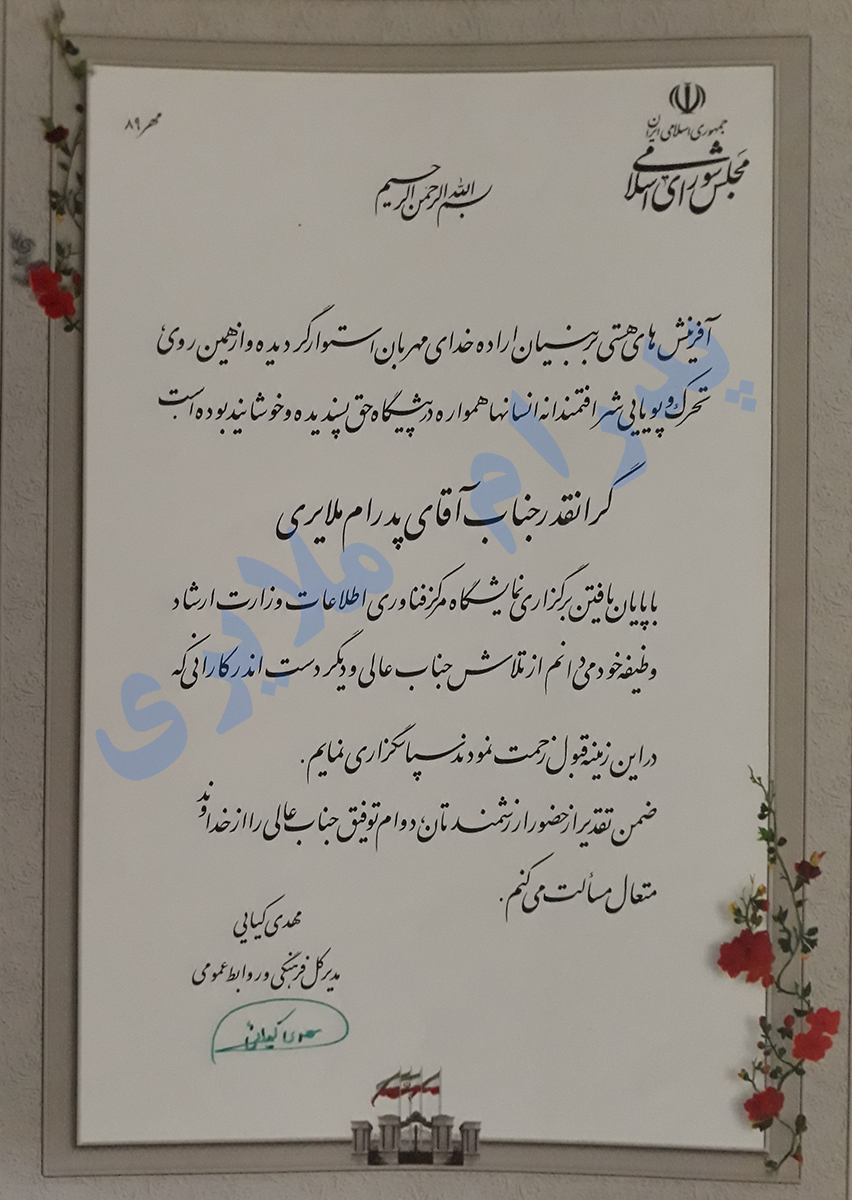 جمهوری اسلامی ایران
مجلس شورای اسلامی
مهر ۸۹
بسم الله الرحمن الرحیم
آفرینش های هستی بر بنیان اراده خدای مهربان استوار گردیده و از همین روی؛
تحرک و پویایی شرافتمندانه انسانها همواره در پیشگاه حق پسندیده و خوشایند بوده است
گرانقدر جناب آقای پدرام ملایری
با پایان یافتن برگزاری نمایشگاه مرکز فناوری اطلاعات وزارت ارشاد
وظیفه خود می دانم از تلاش جناب عالی و دیگر دست اندرکارانی که
در این زمینه قبول زحمت نمودند سپاسگزاری نمایم.
ضمن تقدیر از حضور ارزشمندتان، دوام توفیق جناب عالی را از خداوند
متعال مسألت می کنم.
مهدی کیایی
مدیر کل فرهنگی و روابط عمومی
پدرام ملایری